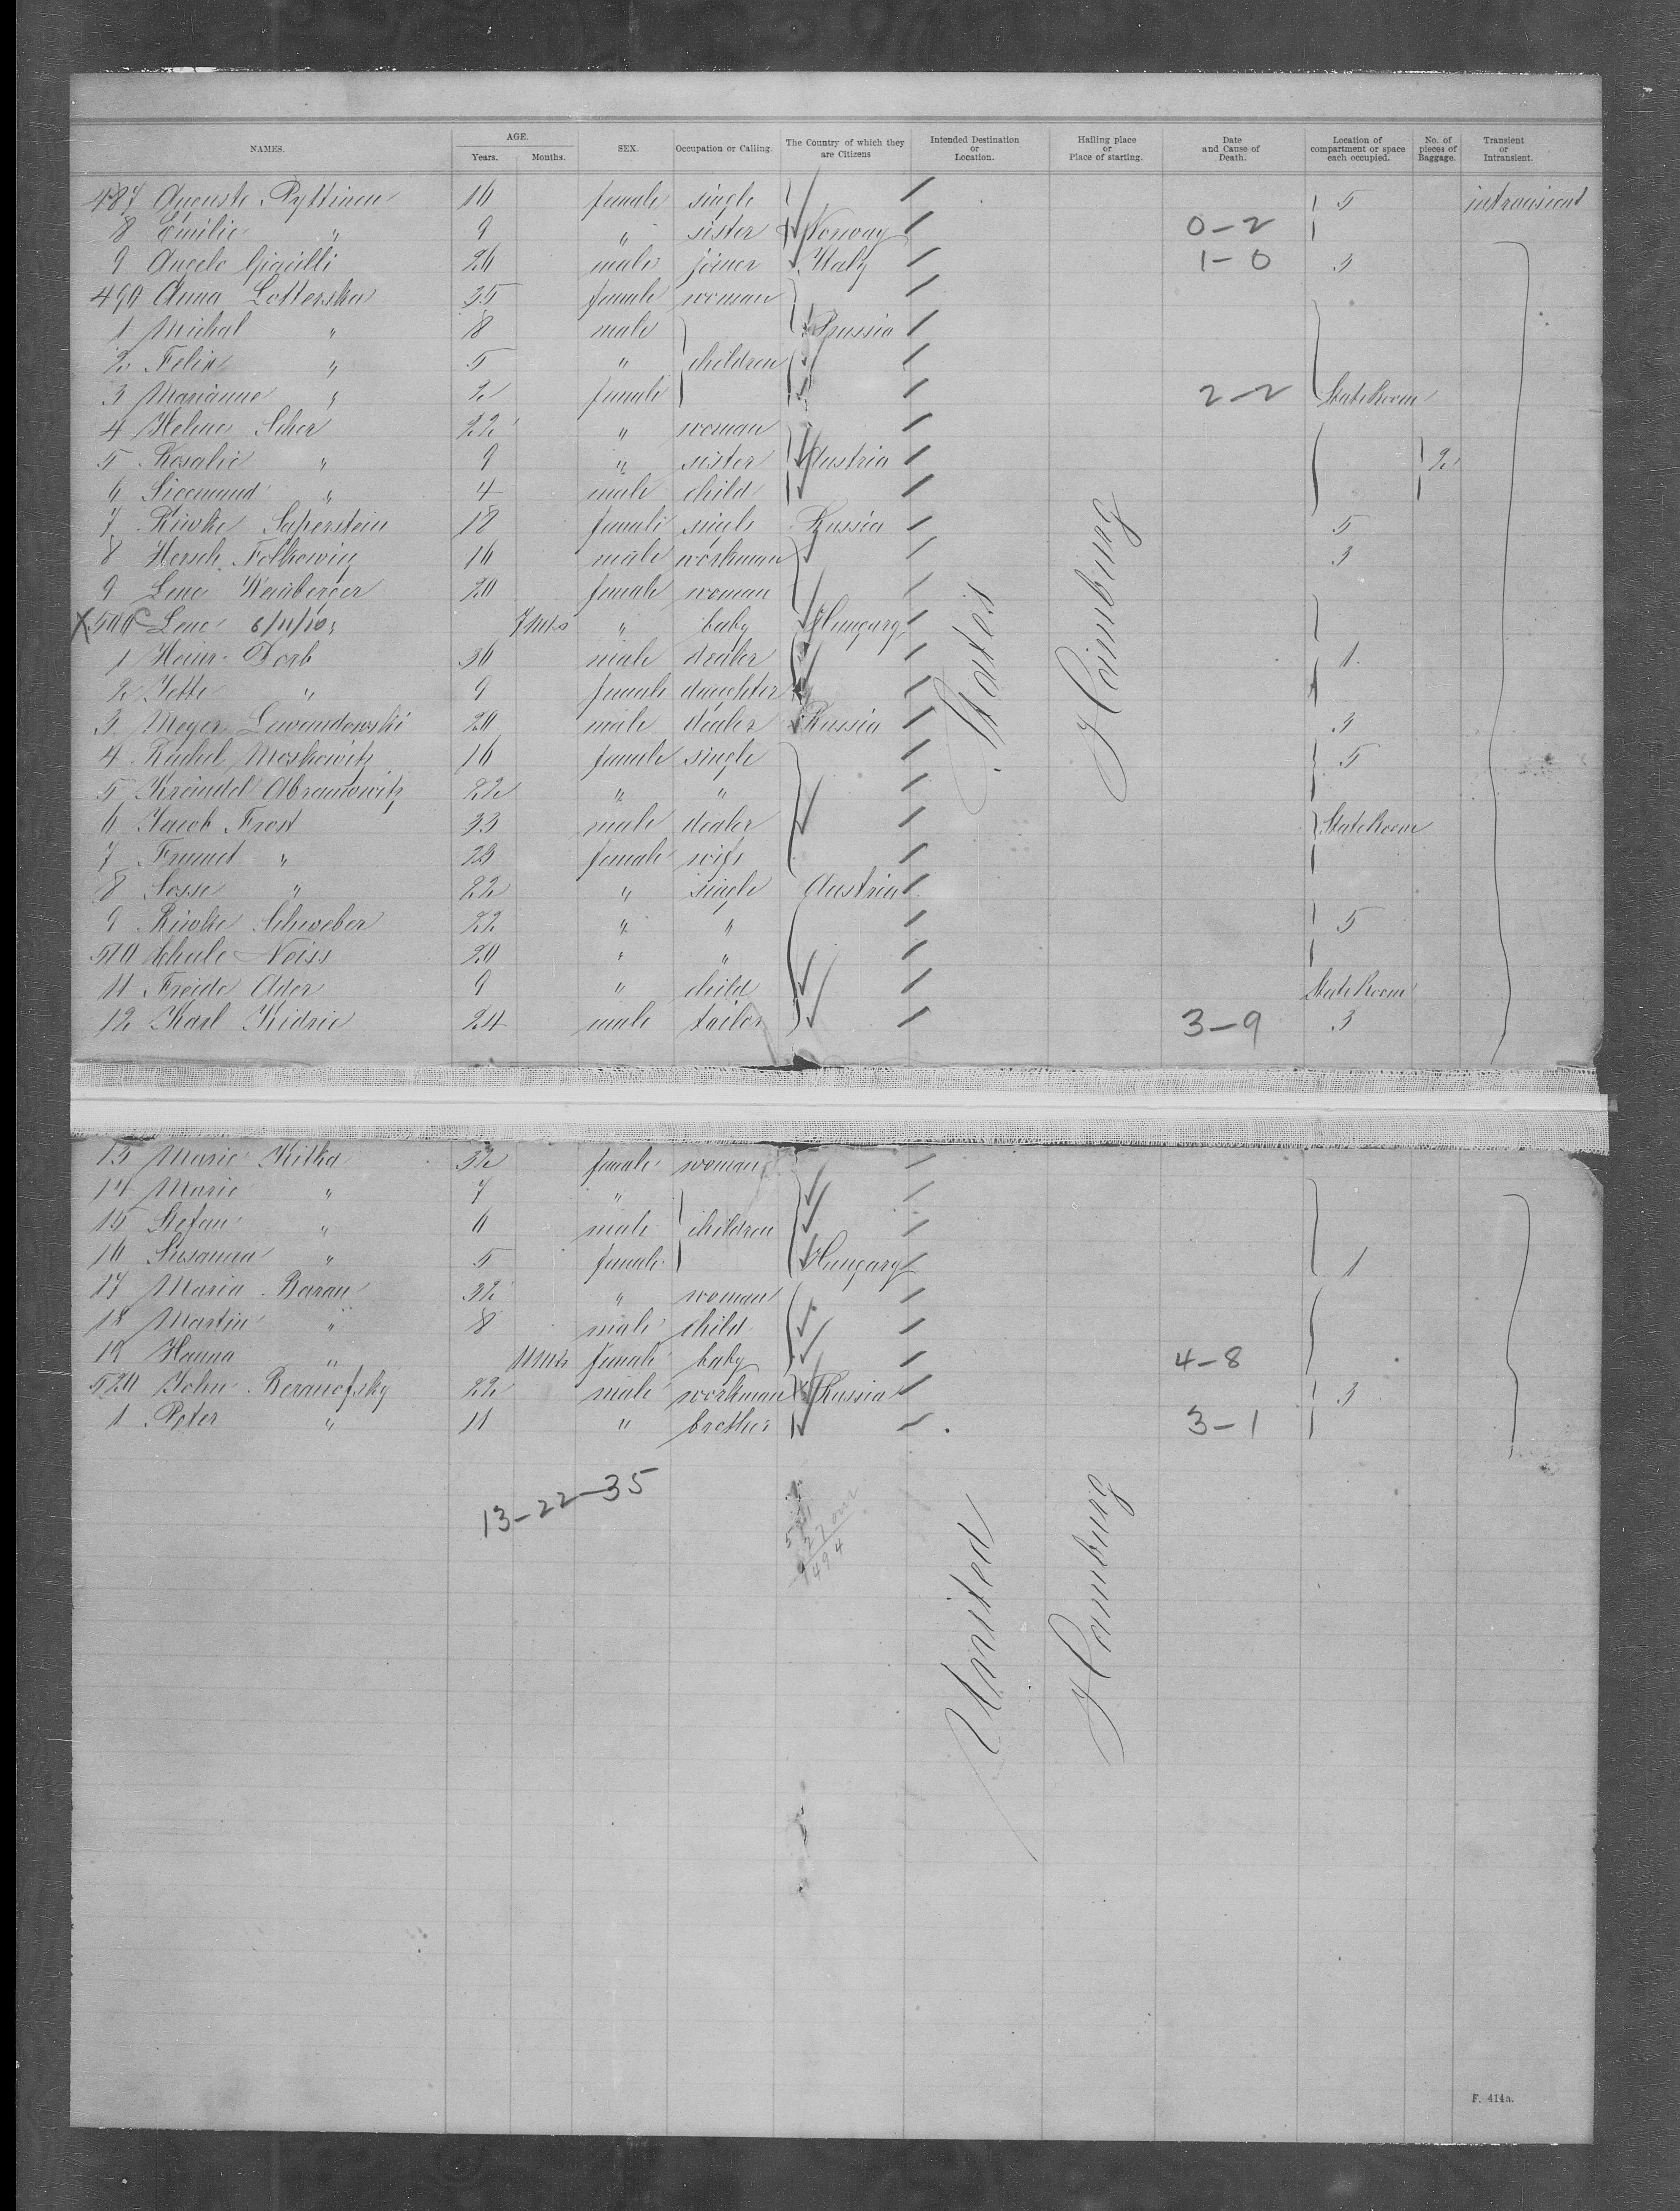 NAMES. AGE. Years. Months. SEX. Occupation or Calling. The Country of which they are Citizens Intended Destination or Location. Hailing place or Place of starting. Date and Cause of Death. Location of compartment or space each occupied. No. of pieces of Baggage. Transient or Intransient.
487 Auguste Pyttinen 16 female single 5 intransient
8 Emilie " 9 " sister Norway 0-2
9 Angelo 26 male joiner Italy 1-0 3
490 Anna Lotterska 35 female woman
1 Michal " 8 male Russia
2 Felix " 5 " children
3 Marianne " 2 female 2-2 State Room
4 Helene Scher 22 " woman
5 Rosalie " 9 " sister Austria 2
6 Siegmund " 4 male child
7 Riwke Saperstein 18 female single Russia 5
8 Hersch Folkowicz 16 male workman 3
9 Lene Weinberger 20 female woman
X 500 Lene 6/11/10 " 7 Mts " baby Hungary
1 Heinr. Dorb 36 male dealer 1
2 Jette " 9 female daughter
3 Meyer Lewandowski 20 male dealer Russia 3
4 Rachel Moskowitz 16 female single 5
5 Kreindel Abramowitz 22 " "
6 Jacob Frost 33 male dealer State Room
7 Frumet " 23 female wife
8 Sosse " 22 " single Austria
9 Riwke Schweber 22 " " 5
510 Scheile Neiss 20 " "
11 Freide Ader 9 " child State Room
12 Karl Kidric 24 male tailor 3-9 3
States
Hamburg
13 Marie Kitka 32 female woman
14 Marie " 7 "
15 Stefan " 6 male children
16 Susanna " 5 female Hungary 1
17 Maria Baran 32 " woman
18 Martin " 8 male child
19 Hanna " 11 Mts female baby 4-8
520 John Beranofsky 22 male workman Russia 3
1 Peter " 11 " brother 3-1
13-22-35
521
27 over
494
United
Hamburg
F. 414a.